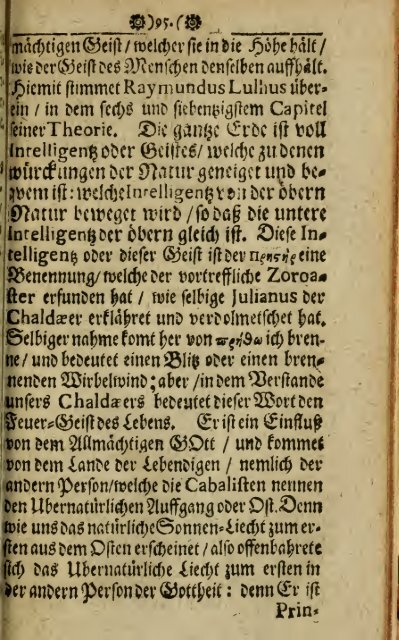 )95.(
mächtigen Geist / welcher sie in die Höhe hält /
wie der Geist des Menschen denselben auffhält.
Hiemit stimmet Raymundus Lullius über-
ein / in dem sechs und siebenzigstem Capitel
seiner Theorie. Die gantze Erde ist voll
Intelligentz oder Geistes / welche zu denen
würckungen der Natur geneiget und be-
qvem ist: welche Intelligentz von der obern
Natur beweget wird / so daß die untere
Intelligentz der obern gleich ist. Diese In-
telligentz oder dieser Geist ist der eine
Benennung / welche der vortreffliche Zoroa-
ster erfunden hat / wie selbige Julianus der
Chaldæer erklähret und verdolmetschet hat.
Selbiger nahme komt her von ich bren-
ne / und bedeutet einen Blitz oder einen bren-
nenden Wirbelwind; aber / in dem Verstande
unsers Chaldæers bedeutet dieser Wort den
Feuer-Geist des Lebens. Er ist ein Einfluß
von dem Allmächtigen GOtt / und kommet
von dem Lande der Lebendigen / nemlich der
andern Person / welche die Cabalisten nennen
den Ubernatürlichen Auffgang oder Ost. Denn
wie uns das natürliche Sonnen-Liecht zum er-
sten aus dem Osten erscheinet / also offenbahrete
sich das Ubernatürliche Liecht zum ersten in
der andern Person der Gottheit: denn Er ist
Prin-